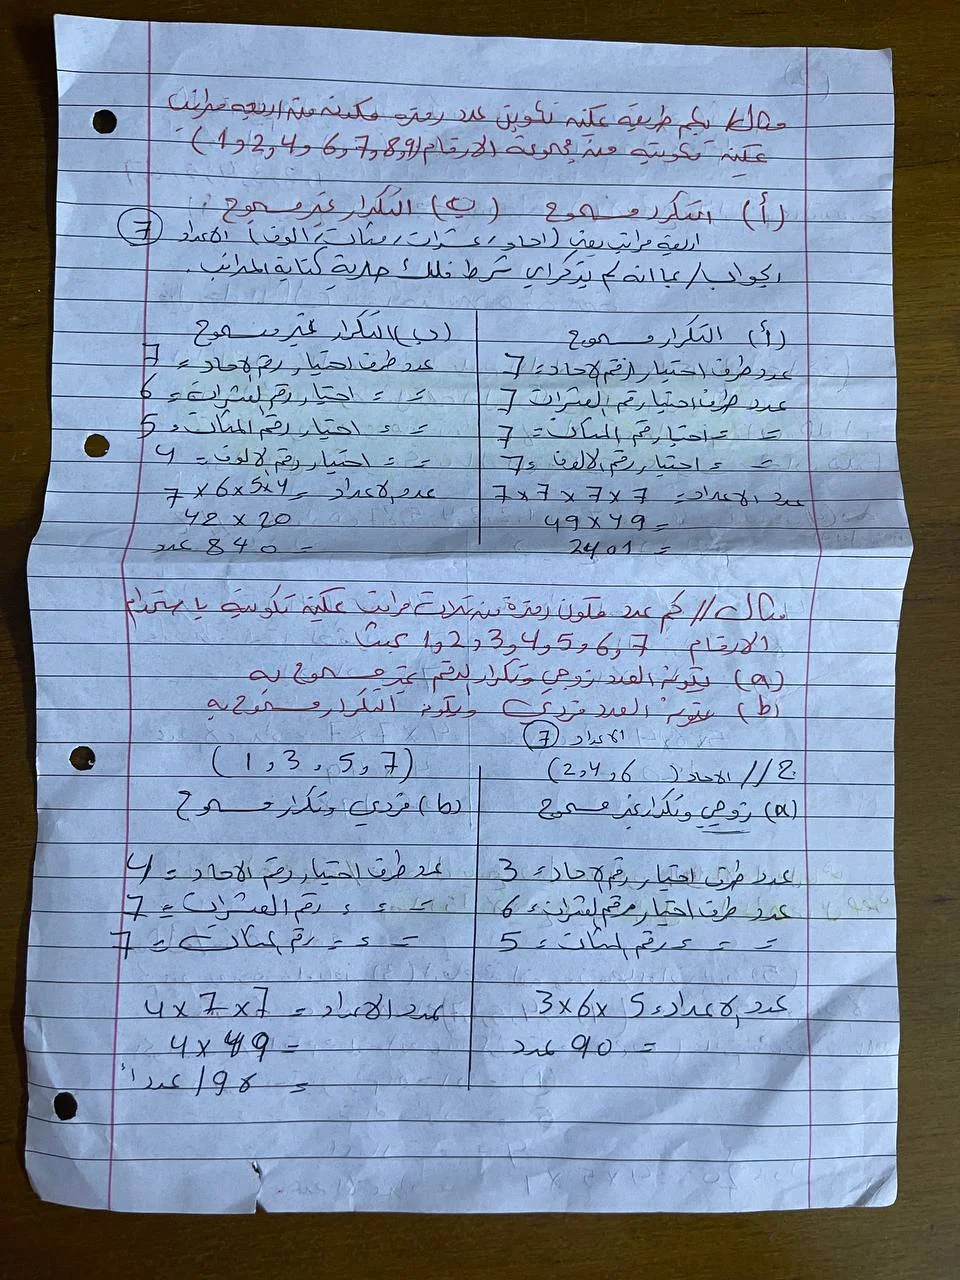 مثال/ بكم طريقة يمكن تكوين عدد رمزه مكون من اربعة مراتب
يمكن تكوينه من مجموعة الارقام (1,2,4,6,7,8,9)
(أ) التكرار مسموح (ب) التكرار غير مسموح.
اربعة مراتب يعني (احاد، عشرات، مئات، الوف) الاعداد 7
الجواب/ بما انه لم يذكر اي شرط فلك حرية كتابة المراتب.
(أ) التكرار مسموح
عدد طرق اختيار رقم الاحاد = 7
عدد طرق اختيار رقم العشرات 7
= = اختيار رقم المئات = 7
= = اختيار رقم الالوف = 7
عدد الاعداد = 7 × 7 × 7 × 7
= 49 × 49
= 2401
(ب) التكرار غير مسموح
عدد طرق اختيار رقم الاحاد = 7
= = اختيار رقم العشرات = 6
= = اختيار رقم المئات = 5
= = اختيار رقم الالوف = 4
عدد الاعداد = 7 × 6 × 5 × 4
42 × 20
= 840 عدد
مثال // كم عدد مكون رمزه من ثلاث مراتب يمكن تكوينه باستخدام
الارقام 1,2,3,4,5,6,7 بحيث
(a) يكون العدد زوجي وتكرار الرقم غير مسموح به
(b) يكون العدد فردي ويكون التكرار مسموح به
الاعداد 7
ج // الاحاد (2,4,6)
(a) زوجي وتكرار غير مسموح
عدد طرق اختيار رقم الاحاد = 3
عدد طرق اختيار رقم العشرات = 6
= = = رقم المئات = 5
عدد الاعداد = 3×6×5
= 90 عدد
(1,3,5,7)
(b) فردي وتكرار مسموح
عدد طرق اختيار رقم الاحاد = 4
= = = رقم العشرات = 7
= = = رقم المئات = 7
عدد الاعداد = 4×7×7
= 4×49
= 196 عدداً